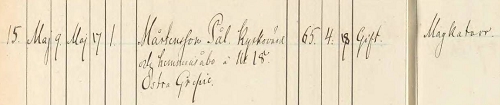 15. Maj 9. Maj 17 1. Mårtensson Pål. Kyrkovärd 65. 4. 18 Gift. Magkatarr.
och hemmansåbo å № 18.
Östra Grefvie.